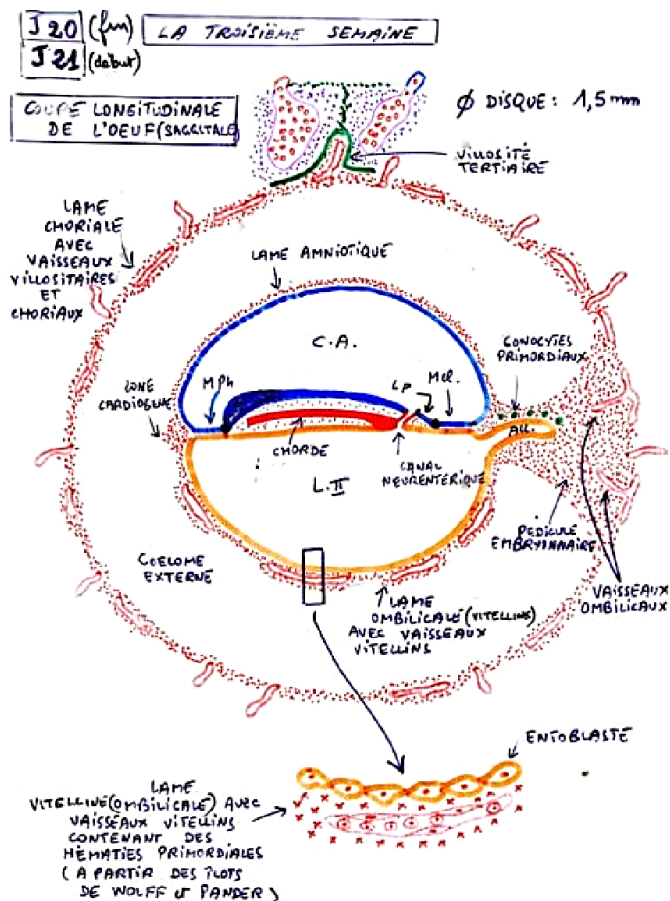 J20 (fin) LA TROISIÈME SEMAINE
J21 (début)
COUPE LONGITUDINALE
DE L'OEUF (SAGGITALE)
Ø DISQUE : 1,5 mm
VILLOSITÉ
TERTIAIRE
LAME
CHORIALE
AVEC
VAISSEAUX
VILLOSITAIRES
ET
CHORIAUX
LAME AMNIOTIQUE
C.A.
GONOCYTES
PRIMORDIAUX
ZONE
CARDIOGENE
M.Ph
L.P
M.cl.
ALL.
CHORDE
CANAL
NEURENTERIQUE
L.II
PEDICULE
EMBRYONNAIRE
COELOME
EXTERNE
VAISSEAUX
OMBILICAUX
LAME
OMBILICALE (VITELLINS)
AVEC VAISSEAUX
VITELLINS
ENTOBLASTE
LAME
VITELLINE (OMBILICALE) AVEC
VAISSEAUX VITELLINS
CONTENANT DES
HÉMATIES PRIMORDIALES
( A PARTIR DES ÎLOTS
DE WOLFF et PANDER )